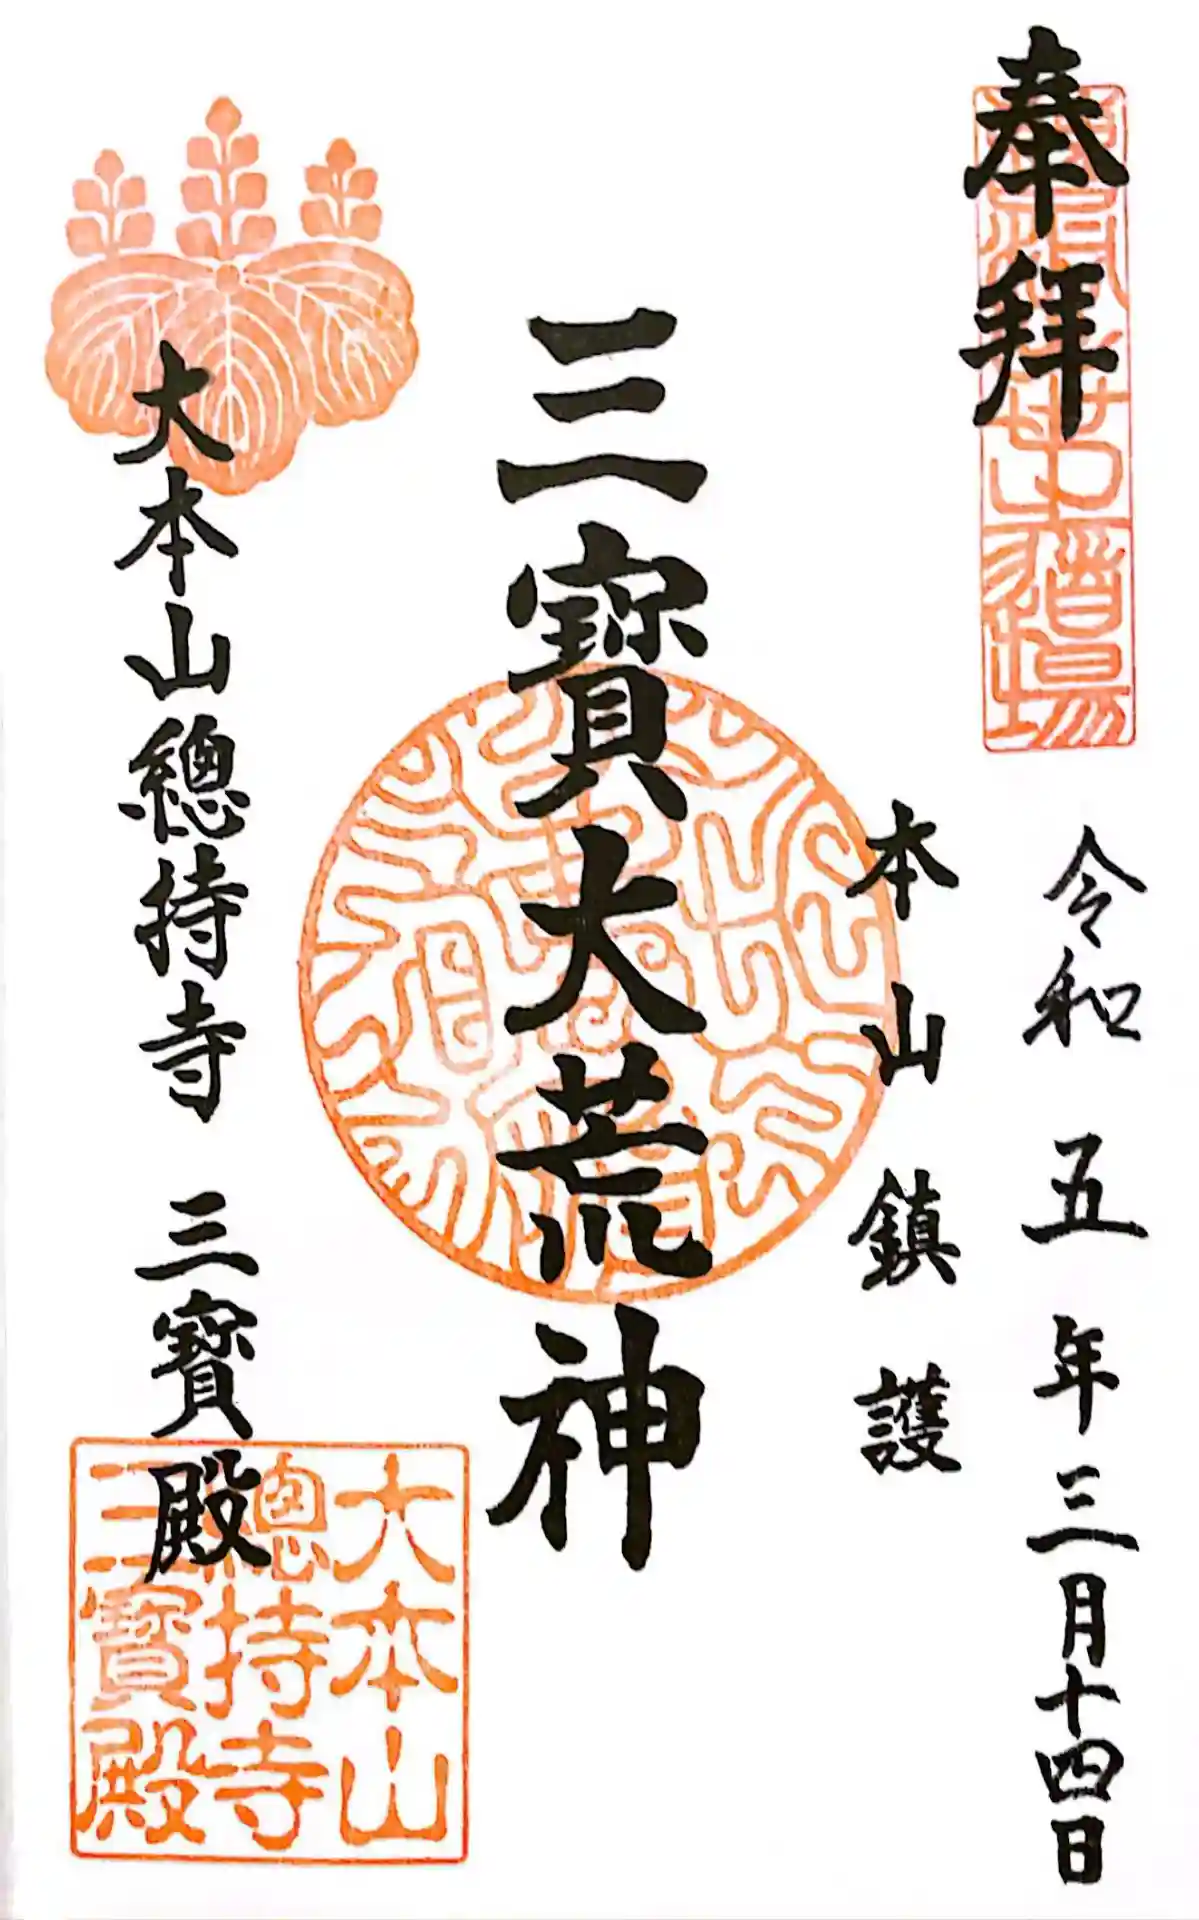 奉拝
令和五年三月十四日
本山鎮護
三寶大荒神
大本山總持寺 三寶殿
大本山
總持寺
三寶殿